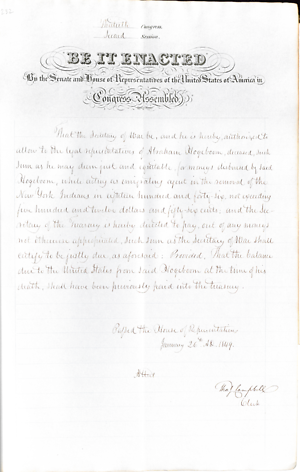 Thirtieth Congress,
Second Session.
BE IT ENACTED
By the Senate and House of Representatives of the United States of America in
Congress Assembled,
That the Secretary of War be, and he is hereby authorized to
allow to the legal representatives of Abraham Hogeboom, deceased, such
sum as he may deem just and equitable, for moneys disbursed by said
Hogeboom, while acting as emigrating agent in the removal of the
New York Indians in eighteen hundred and forty six, not exceeding
five hundred and twelve dollars and fifty-six cents, and the Sec-
retary of the Treasury is hereby directed to pay, out of any moneys
not otherwise appropriated, such sum as the Secretary of War shall
certify to be justly due, as aforesaid: Provided, That the balance
due to the United States from said Hogeboom at the time of his
death, shall have been previously paid into the treasury.
Passed the House of Representatives
January 26th AD. 1849.
Attest
Thos. J. Campbell
Clerk